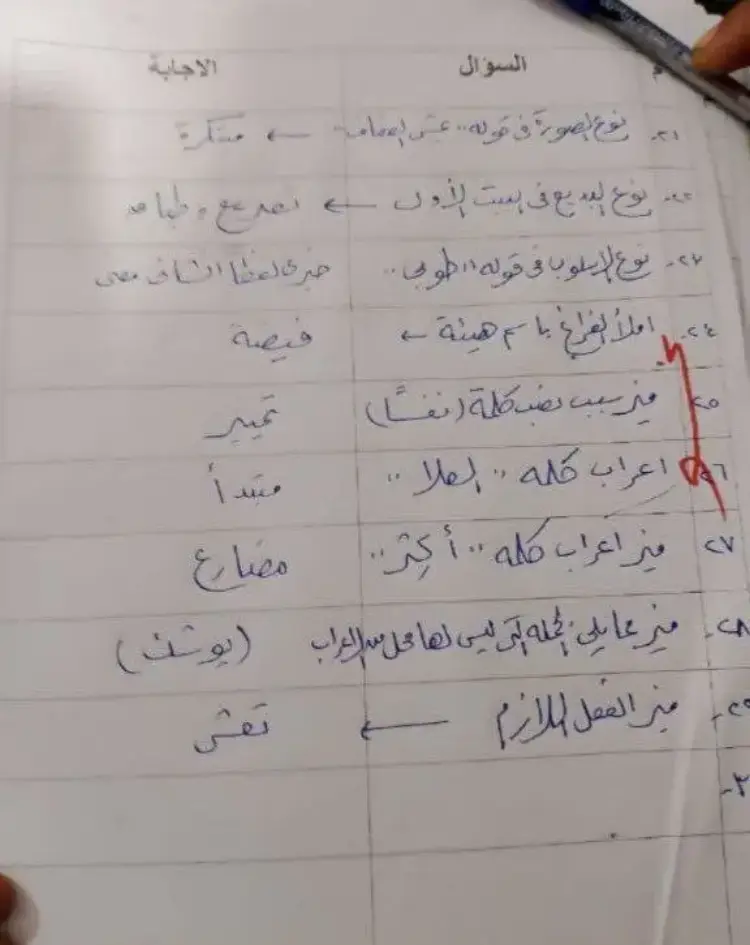 م السؤال الاجابة
٢١- نوع الصورة في قوله "عش العفاف" ← مبتكرة
٢٢- نوع البديع في البيت الأول ← تصريع و طباق
٢٣- نوع الاسلوب في قوله "طوبى" خبرى لفظا انشائى معنى
٢٤- املأ الفراغ باسم هيئة ←
٢٥ ميز سبب نصب كلمة (نفسًا) تمييز
٢٦ اعراب كلمه "العلا" مبتدأ
٢٧ ميز اعراب كلمه "أكثر" مضارع
٢٨- ميز مما يلي الجمله التى ليس لها محل من الاعراب
٢٩- ميز الفعل اللازم ←
٣٠-